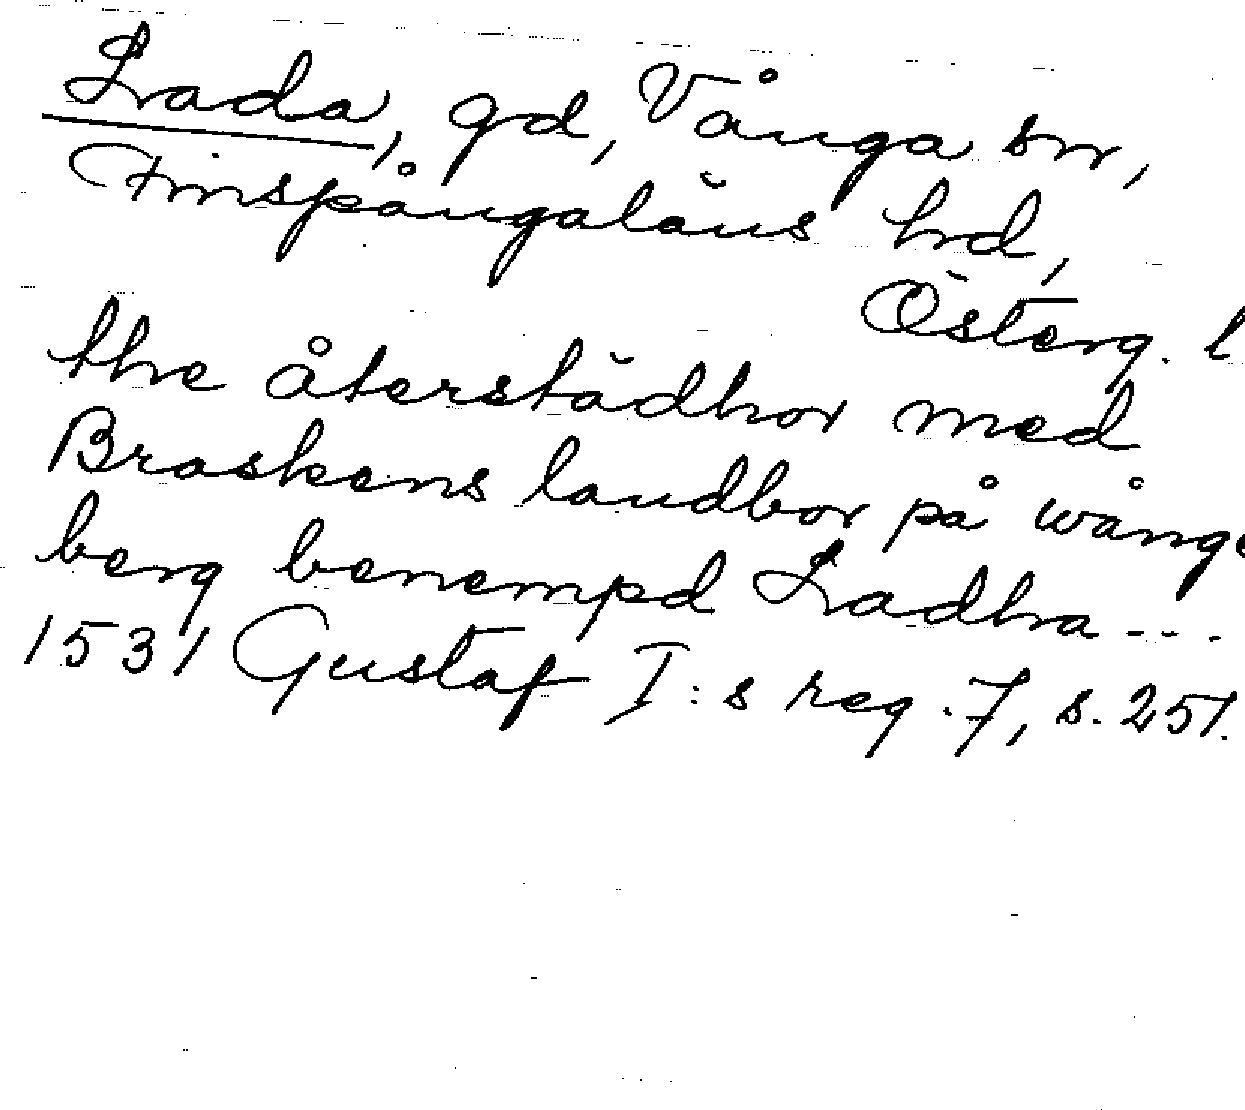 Lada, gd, Vånga sn,
Finspångaläns hd,
Österg. l
thre återstädhor med
Braskens landbor på wånge
berg benempd Ladha ...
1531 Gustaf I:s reg. 7, s. 251.